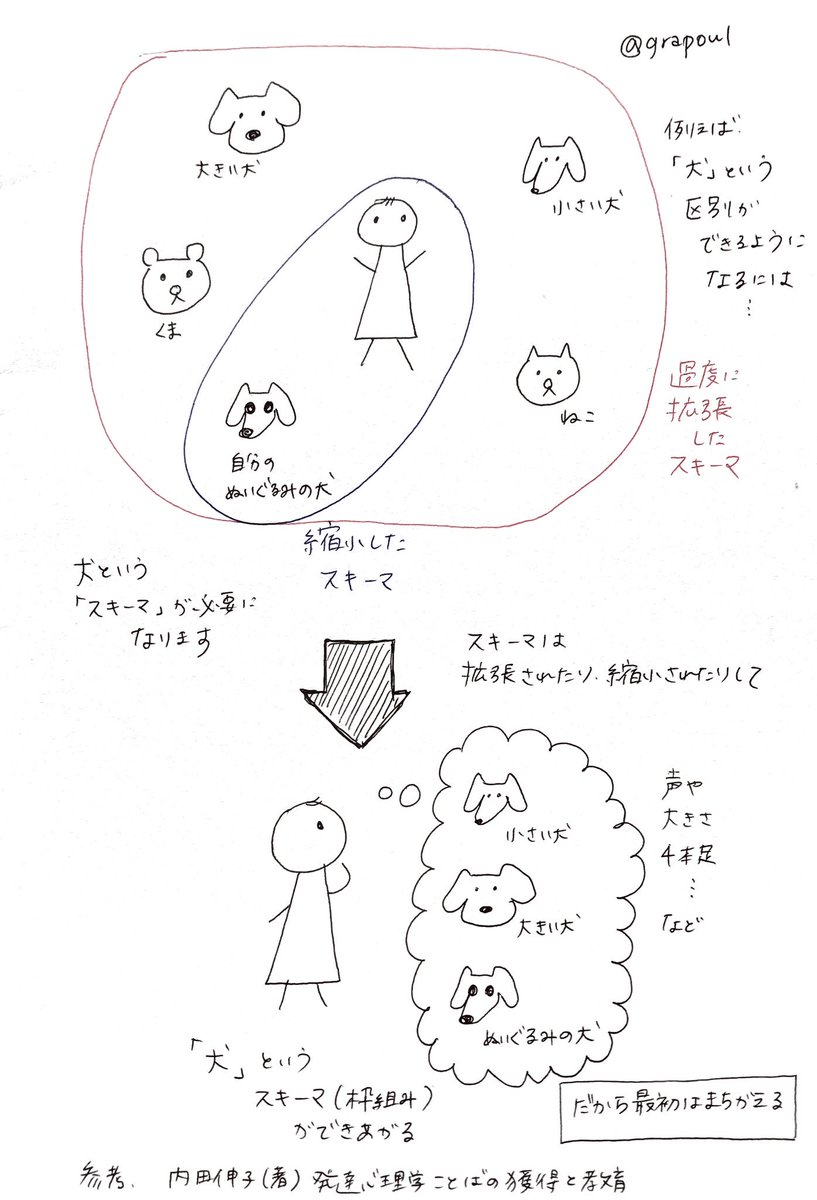 @grapoul
大きい犬
小さい犬
くま
ねこ
自分の
ぬいぐるみの犬
例えば
「犬」という
区別が
できるように
なるには
…
過度に
拡張
した
スキーマ
縮小した
スキーマ
犬という
「スキーマ」が必要に
なります
スキーマは
拡張されたり、縮小されたりして
小さい犬
大きい犬
ぬいぐるみの犬
声や
大きさ
4本足
…
など
「犬」という
スキーマ(枠組み)
ができあがる
だから最初はまちがえる
参考、内田伸子(著)発達心理学ことばの獲得と教育